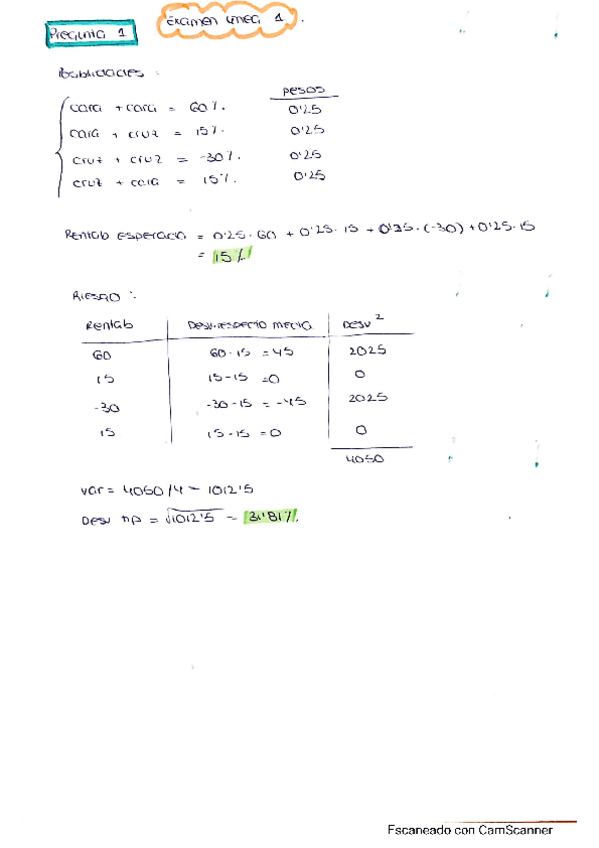 Examen línea 1.
Pregunta 1
Posibilidades :
pesos
cara + cara = 60%. 0'25
cara + cruz = 15%. 0'25
cruz + cruz = -30%. 0'25
cruz + cara = 15%. 0'25
Rentab esperada = 0'25·60 + 0'25·15 + 0'25·(-30) + 0'25·15
= 15%
RIESGO :
Rentab Desv.respecto media Desv²
60 60-15 = 45 2025
15 15-15 = 0 0
-30 -30-15 = -45 2025
15 15-15 = 0 0
4050
var = 4050/4 = 1012'5
Desv tip = √1012'5 = 31'81%.
Escaneado con CamScanner